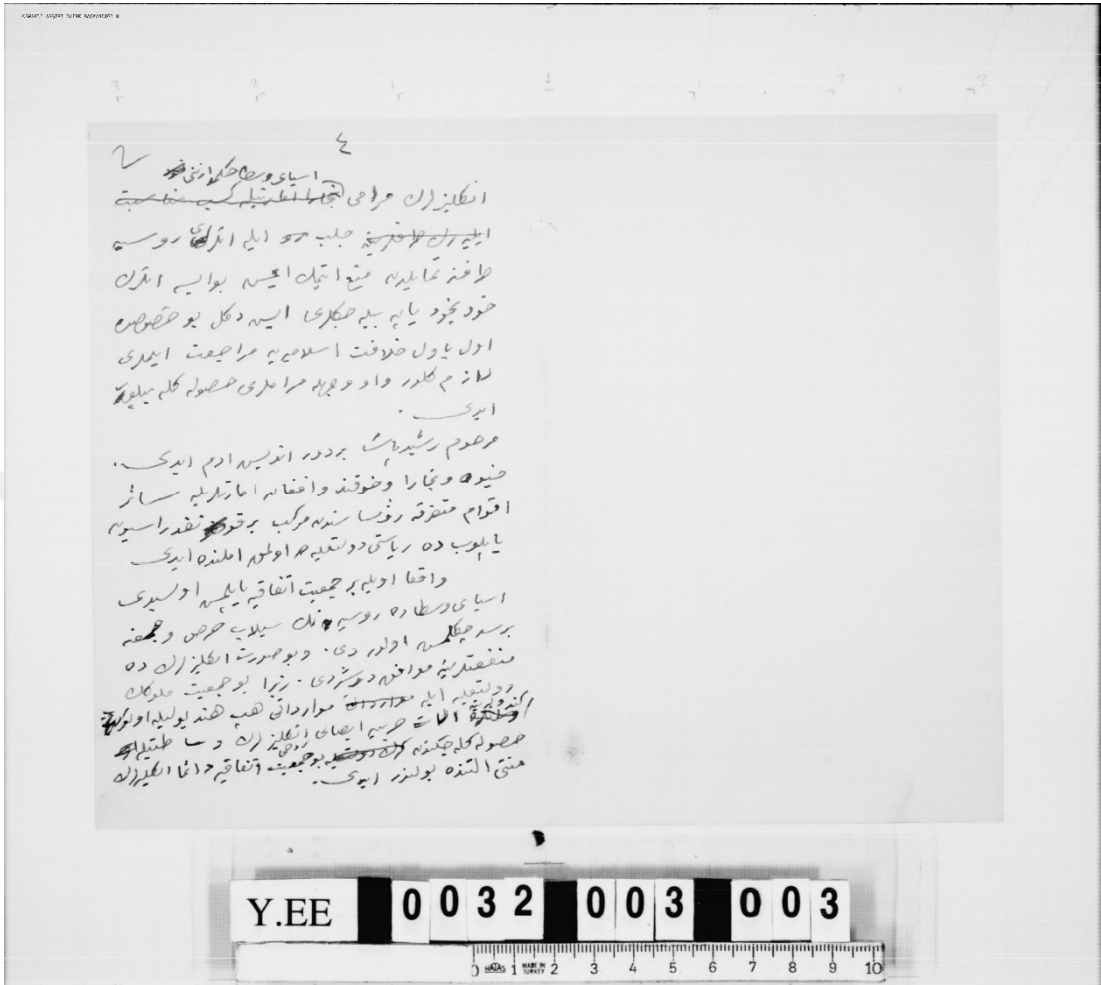 ٤
اسیای وسطا حکمدارلرینی
انكلیزلرك مرامی
جلب ایله انلری روسیه
طرفنه تمایلدن منع ایتمك ایمیش بو ایسه انلرك
خود بخود یاپه بیله جكلری ایش دكل بو خصوصده
اول باول خلافت اسلامیه یه مراجعت ایتملری
لازم كلور واو وجهله مراملری حصوله كله بیلور
ایدی .
مرحوم رشید پاشا بر دور اندیش ادم ایدی .
خیوه و بخارا و خوقند و افغان امارتلریله سائر
اقوام متفرقه رؤساسندن مركب بر قونفدراسیون
یاپلوب ده ریاستی دولتعلیه ده اولمق املنده ایدی
واقعا اویله بر جمعیت اتفاقیه یاپلمش اولسیدی
اسیای وسطاده روسیه نك سیلاب حرص و
بر سد چكلمش اولور دی . و بو صورت انكلیزلرك ده
منفعتلرینه موافق دوشردی . زیرا بو جمعیت ملوكك
دولتعلیه ایله مواردانی هپ هند یولیله
الات حربیه ایصالی انكلیزلرك وساطتیله
حصوله كله جكندن بو جمعیت اتفاقیه دائما انكلیزلرك
منتی التنده بولنور ایدی .
Y.EE 0032 003 003
0 HATAS 1 MADE IN TURKEY 2 3 4 5 6 7 8 9 10